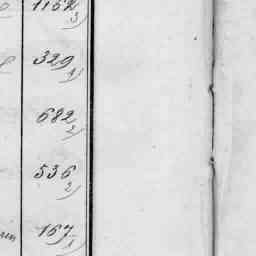 1152
3)
329
4)
682
2)
536
2)
167
1)